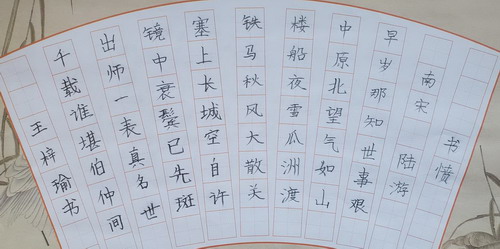 书愤
南宋 陆游
早岁那知世事艰
中原北望气如山
楼船夜雪瓜洲渡
铁马秋风大散关
塞上长城空自许
镜中衰鬓已先斑
出师一表真名世
千载谁堪伯仲间
王梓瑜书